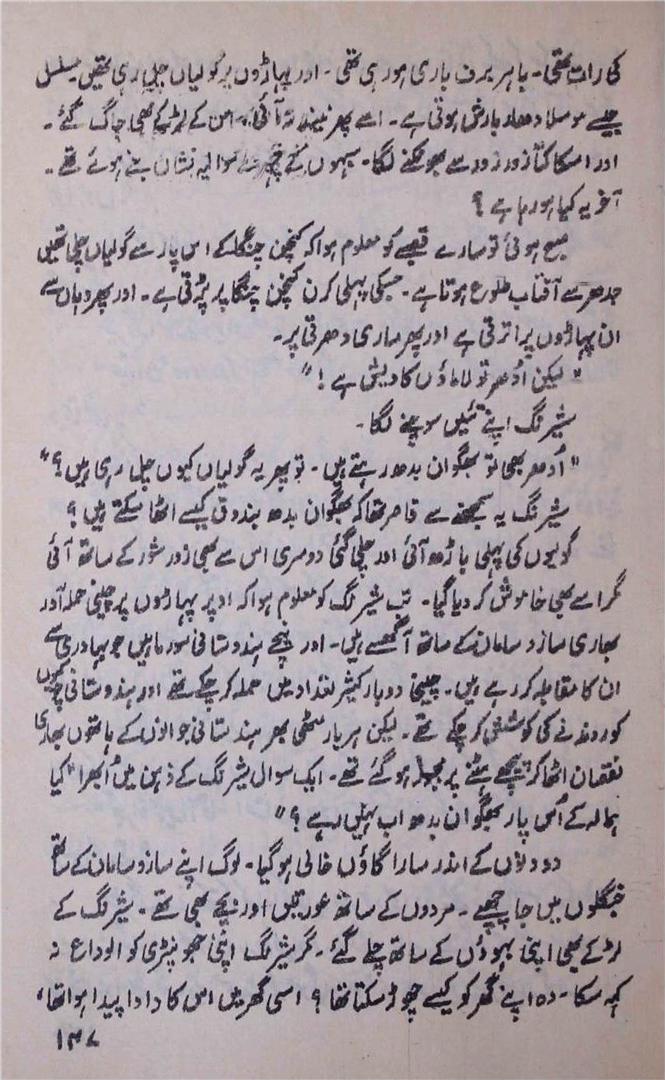 کی رات تھی۔ باہر برف باری ہو رہی تھی۔ اور پہاڑوں پر گولیاں چل رہی تھیں مسلسل
جیسے موسلا دھار بارش ہوتی ہے۔ اسے پھر نیند نہ آئی۔ اس کے لڑکے بھی جاگ گئے۔
اور اسکا کتّا زور زور سے بھونکنے لگا۔ سبھوں کے چہرے سوالیہ نشان بنے ہوئے تھے۔
آخر یہ کیا ہو رہا ہے؟
صبح ہوئی تو سارے قصبے کو معلوم ہوا کہ کنچن چنگا کے اس پار سے گولیاں چلی تھیں
جدھر سے آفتاب طلوع ہوتا ہے۔ جسکی پہلی کرن کنچن چنگا پر پڑتی ہے۔ اور پھر وہاں سے
ان پہاڑوں پر اترتی ہے اور پھر ساری دھرتی پر۔
"لیکن اُدھر تو لاماؤں کا دیش ہے!"
شیرنگ اپنے تئیں سوچنے لگا۔
"اُدھر بھی تو بھگوان بدھ رہتے ہیں۔ تو پھر یہ گولیاں کیوں چل رہی ہیں؟"
شیرنگ یہ سمجھنے سے قاصر تھا کہ بھگوان بدھ بندوق کیسے اٹھا سکتے ہیں؟
گولیوں کی پہلی باڑھ آئی اور چلی گئی دوسری اس سے بھی زور شور کے ساتھ آئی
مگر اسے بھی خاموش کر دیا گیا۔ تب شیرنگ کو معلوم ہوا کہ اوپر پہاڑوں پر چینی حملہ آور
بھاری ساز و سامان کے ساتھ آ گھسے ہیں۔ اور نیچے ہندوستانی سورما ہیں جو بہادری سے
ان کا مقابلہ کر رہے ہیں۔ چینی دوبار کثیر تعداد میں حملہ کر چکے تھے اور ہندوستانی چوکیوں
کو روندنے کی کوشش کر چکے تھے۔ لیکن ہر بار مٹھی بھر ہندستانی جوانوں کے ہاتھوں بھاری
نقصان اٹھا کر پیچھے ہٹنے پر مجبور ہو گئے تھے۔ ایک سوال شیرنگ کے ذہن میں اُبھرا "کیا
ہمالہ کے اُس پار بھگوان بدھ اب نہیں رہے؟"
دو دنوں کے اندر سارا گاؤں خالی ہو گیا۔ لوگ اپنے ساز و سامان کے ساتھ
جنگلوں میں جا چھپے۔ مردوں کے ساتھ عورتیں اور بچے بھی تھے۔ شیرنگ کے
لڑکے بھی اپنی بہوؤں کے ساتھ چلے گئے۔ مگر شیرنگ اپنی جھونپڑی کو الوداع نہ
کہہ سکا۔ وہ اپنے گھر کو کیسے چھوڑ سکتا تھا؟ اسی گھر میں اس کا دادا پیدا ہوا تھا،
۱۳۷